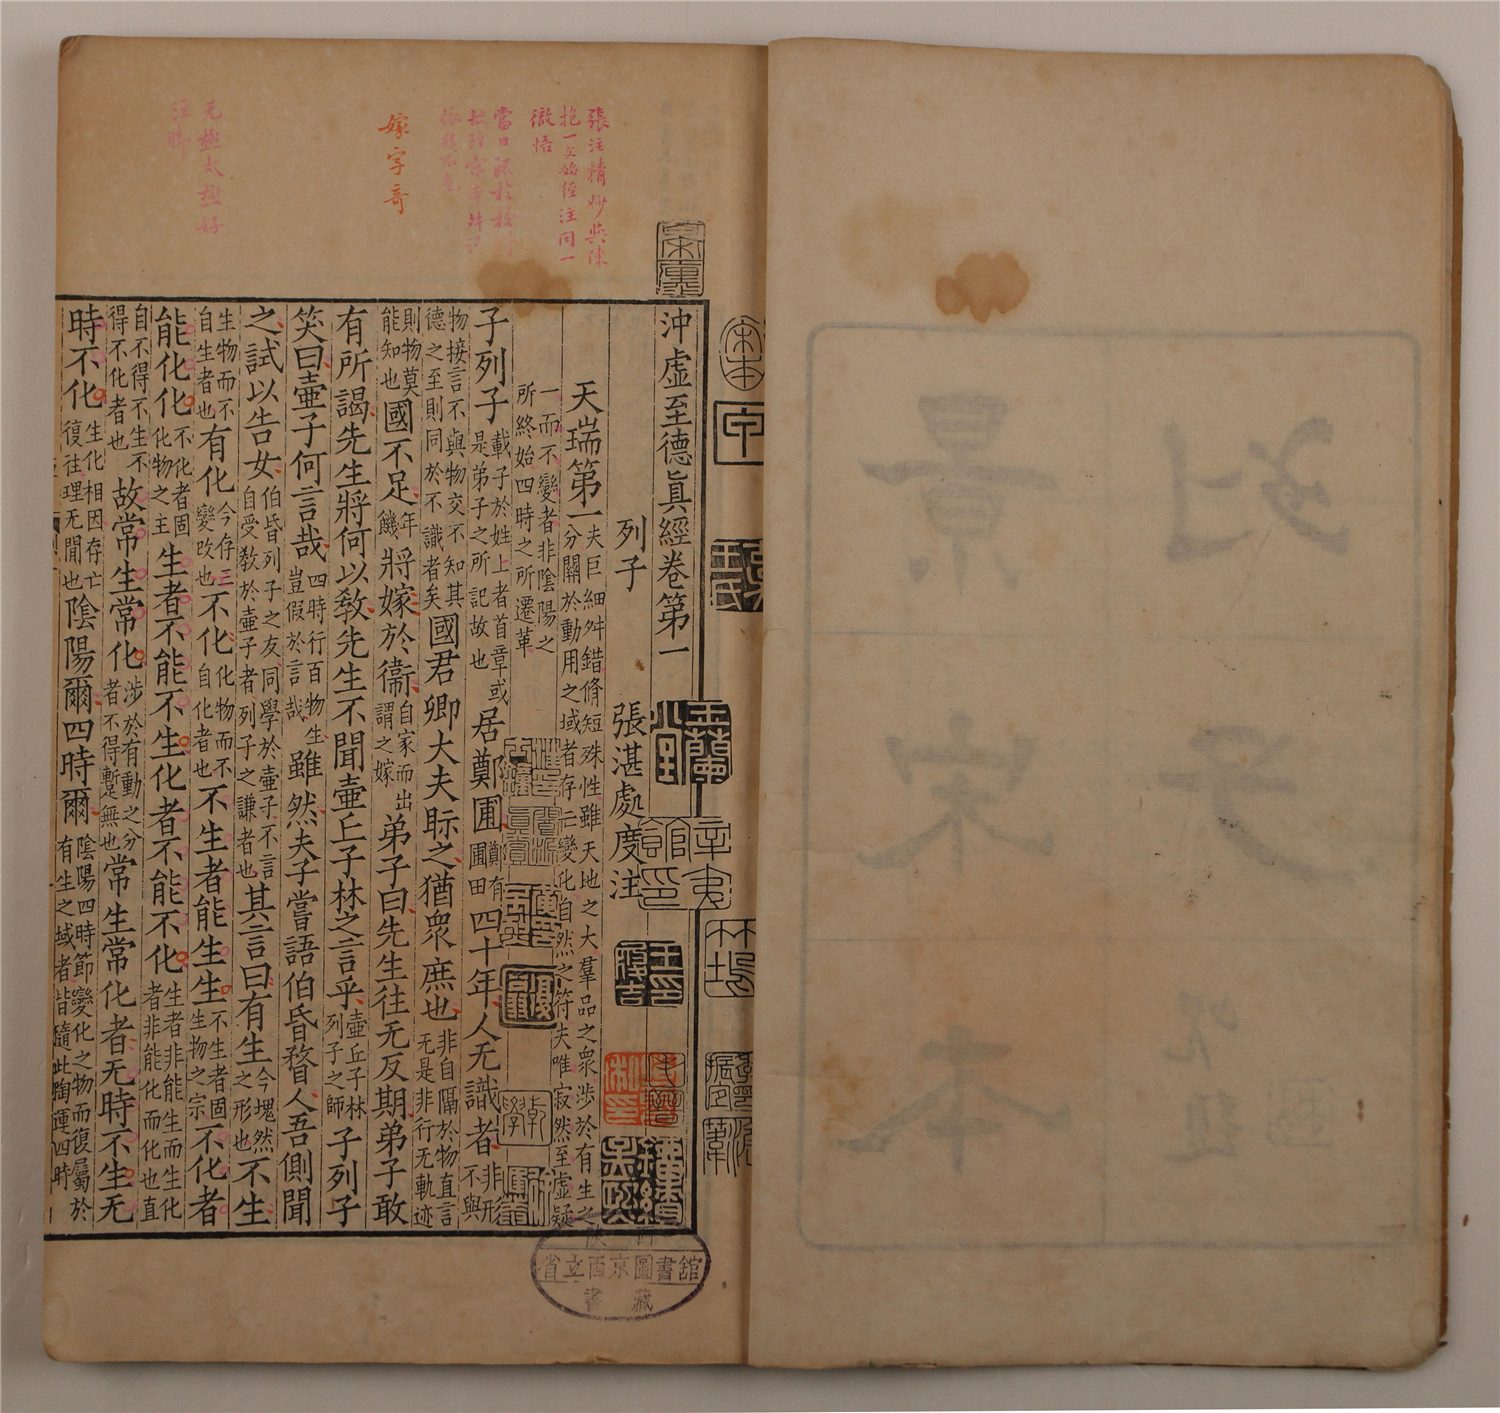 沖虛至德眞經卷第一
列子 張湛處度注
天瑞第一 夫巨細舛錯脩短殊性雖天地之大羣品之衆涉於有生之
分關於動用之域者存亡變化自然之符夫唯寂然至虛凝
一而不變者非陰陽之
所終始四時之所遷革
子列子 載子於姓上者首章或
是弟子之所記故也 居鄭圃 鄭有
圃田 四十年人无識者 非形
不與
物接言不與物交不知其
德之至則同於不識者矣 國君卿大夫眎之猶衆庶也 非自隔於物直言
无是非行无軌迹
則物莫
能知也 國不足 年
饑 將嫁於衞 自家而出
謂之嫁 弟子曰先生往无反期弟子敢
有所謁先生將何以敎先生不聞壷丘子林之言乎 壷丘子林
列子之師 子列子
笑曰壷子何言哉 四時行百物生
豈假於言哉 雖然夫子嘗語伯昏瞀人吾側聞
之試以告女 伯昏列子之友同學於壷子不言
自受敎於壷子者列子之謙者也 其言曰有生 今塊然
之形也 不生
生物而不
自生者也 有化 今存亡
變改也 不化 化物而不
自化者也 不生者能生生 不生者固
生物之宗 不化者
能化化 不化者固
化物之主 生者不能不生化者不能不化 生者非能生而生化
者非能化而化也直
自不得不生不
得不化者也 故常生常化 涉於有動之分
者不得蹔無也 常生常化者无時不生无
時不化 生化相因存亡
復往理无閒也 陰陽爾四時爾 陰陽四時節變化之物而復屬於
有生之域者皆隨此陶運四時
張注精妙與陳
抱一至始經注同一
徹悟
嫁字奇
无極太極好
注脚
陝西
省立西京圖書舘
藏書